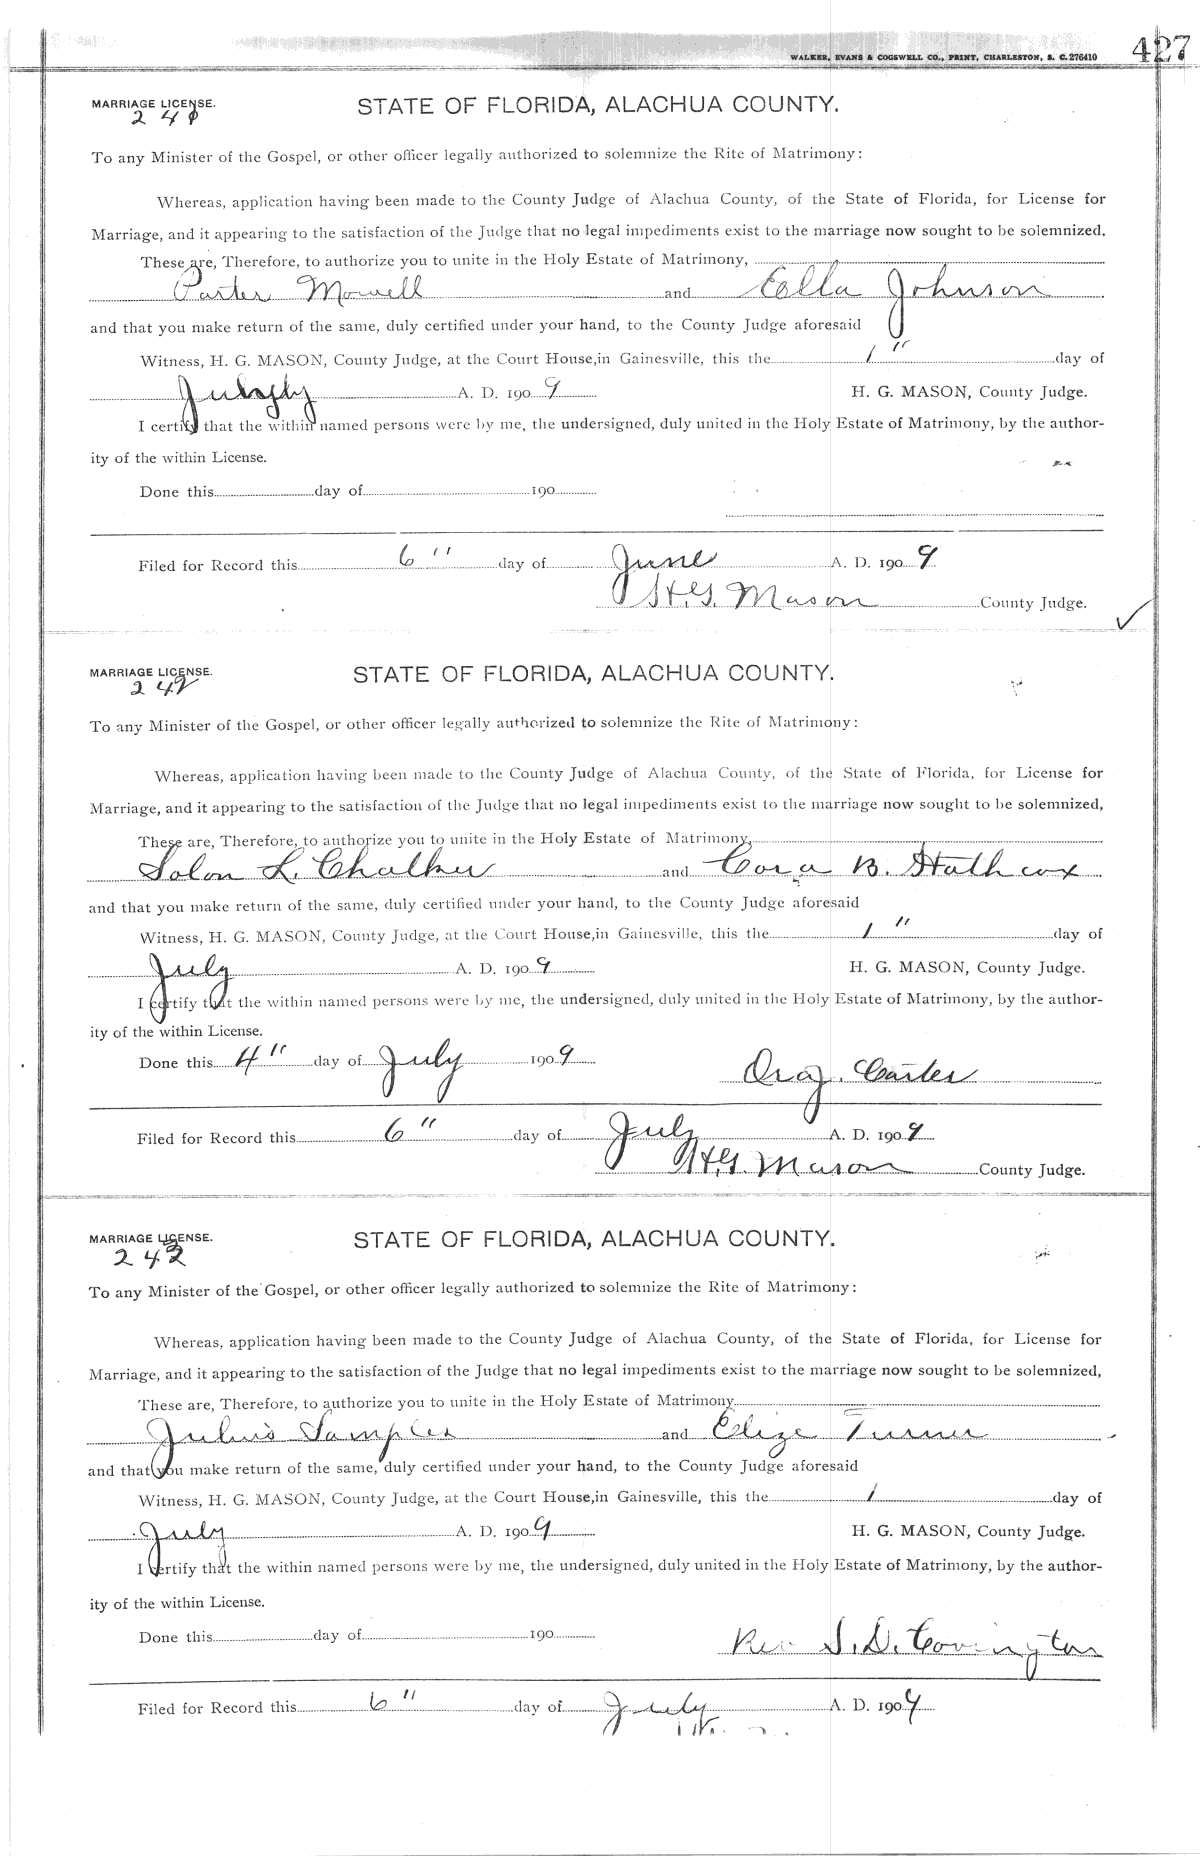 WALKER, EVANS & COGSWELL CO., PRINT, CHARLESTON, S. C. 276410
427
MARRIAGE LICENSE.
STATE OF FLORIDA, ALACHUA COUNTY.
241
To any Minister of the Gospel, or other officer legally authorized to solemnize the Rite of Matrimony:
Whereas, application having been made to the County Judge of Alachua County, of the State of Florida, for License for
Marriage, and it appearing to the satisfaction of the Judge that no legal impediments exist to the marriage now sought to be solemnized.
These are, Therefore, to authorize you to unite in the Holy Estate of Matrimony,
Parter Mowell and Ella Johnson
and that you make return of the same, duly certified under your hand, to the County Judge aforesaid
Witness, H. G. MASON, County Judge, at the Court House, in Gainesville, this the 1" day of
July A. D. 1909 H. G. MASON, County Judge.
I certify that the within named persons were by me, the undersigned, duly united in the Holy Estate of Matrimony, by the author-
ity of the within License.
Done this day of 190
Filed for Record this 6" day of June A. D. 1909
H.G. Mason County Judge.
MARRIAGE LICENSE.
STATE OF FLORIDA, ALACHUA COUNTY.
242
To any Minister of the Gospel, or other officer legally authorized to solemnize the Rite of Matrimony:
Whereas, application having been made to the County Judge of Alachua County, of the State of Florida, for License for
Marriage, and it appearing to the satisfaction of the Judge that no legal impediments exist to the marriage now sought to be solemnized,
These are, Therefore, to authorize you to unite in the Holy Estate of Matrimony,
Solon L. Chalker and Cora B. Heathcox
and that you make return of the same, duly certified under your hand, to the County Judge aforesaid
Witness, H. G. MASON, County Judge, at the Court House, in Gainesville, this the 1" day of
July A. D. 1909 H. G. MASON, County Judge.
I certify that the within named persons were by me, the undersigned, duly united in the Holy Estate of Matrimony, by the author-
ity of the within License.
Done this 4" day of July 1909 Carter
Filed for Record this 6" day of July A. D. 1909
H.G. Mason County Judge.
MARRIAGE LICENSE.
STATE OF FLORIDA, ALACHUA COUNTY.
243
To any Minister of the Gospel, or other officer legally authorized to solemnize the Rite of Matrimony:
Whereas, application having been made to the County Judge of Alachua County, of the State of Florida, for License for
Marriage, and it appearing to the satisfaction of the Judge that no legal impediments exist to the marriage now sought to be solemnized,
These are, Therefore, to authorize you to unite in the Holy Estate of Matrimony
Julius Samples and Elize Turner
and that you make return of the same, duly certified under your hand, to the County Judge aforesaid
Witness, H. G. MASON, County Judge, at the Court House, in Gainesville, this the 1 day of
July A. D. 1909 H. G. MASON, County Judge.
I certify that the within named persons were by me, the undersigned, duly united in the Holy Estate of Matrimony, by the author-
ity of the within License.
Done this day of 190 Rev S. D. Covington
Filed for Record this 6" day of July A. D. 1909